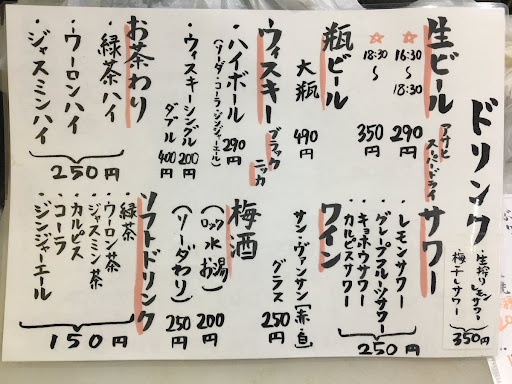 ドリンク
生ビール アサヒスーパードライ
☆ 16:30〜18:30 290円
☆ 18:30〜 350円
瓶ビール
大瓶 490円
ウィスキー ブラックニッカ
・ハイボール 290円
(ソーダ・コーラ・ジンジャーエール)
・ウィスキーシングル 200円
ダブル 400円
お茶わり
・緑茶ハイ
・ウーロンハイ
・ジャスミンハイ
250円
・生搾りレモンサワー
梅干しサワー
350円
サワー
・レモンサワー
・グレープフルーツサワー
・キョホウサワー
・カルピスサワー
250円
ワイン
サン・ヴァンサン[赤・白]
グラス 250円
梅酒
(ロック 水 お湯) 200円
(ソーダわり) 250円
ソフトドリンク
・緑茶
・ウーロン茶
・ジャスミン茶
・カルピス
・コーラ
・ジンジャーエール
150円